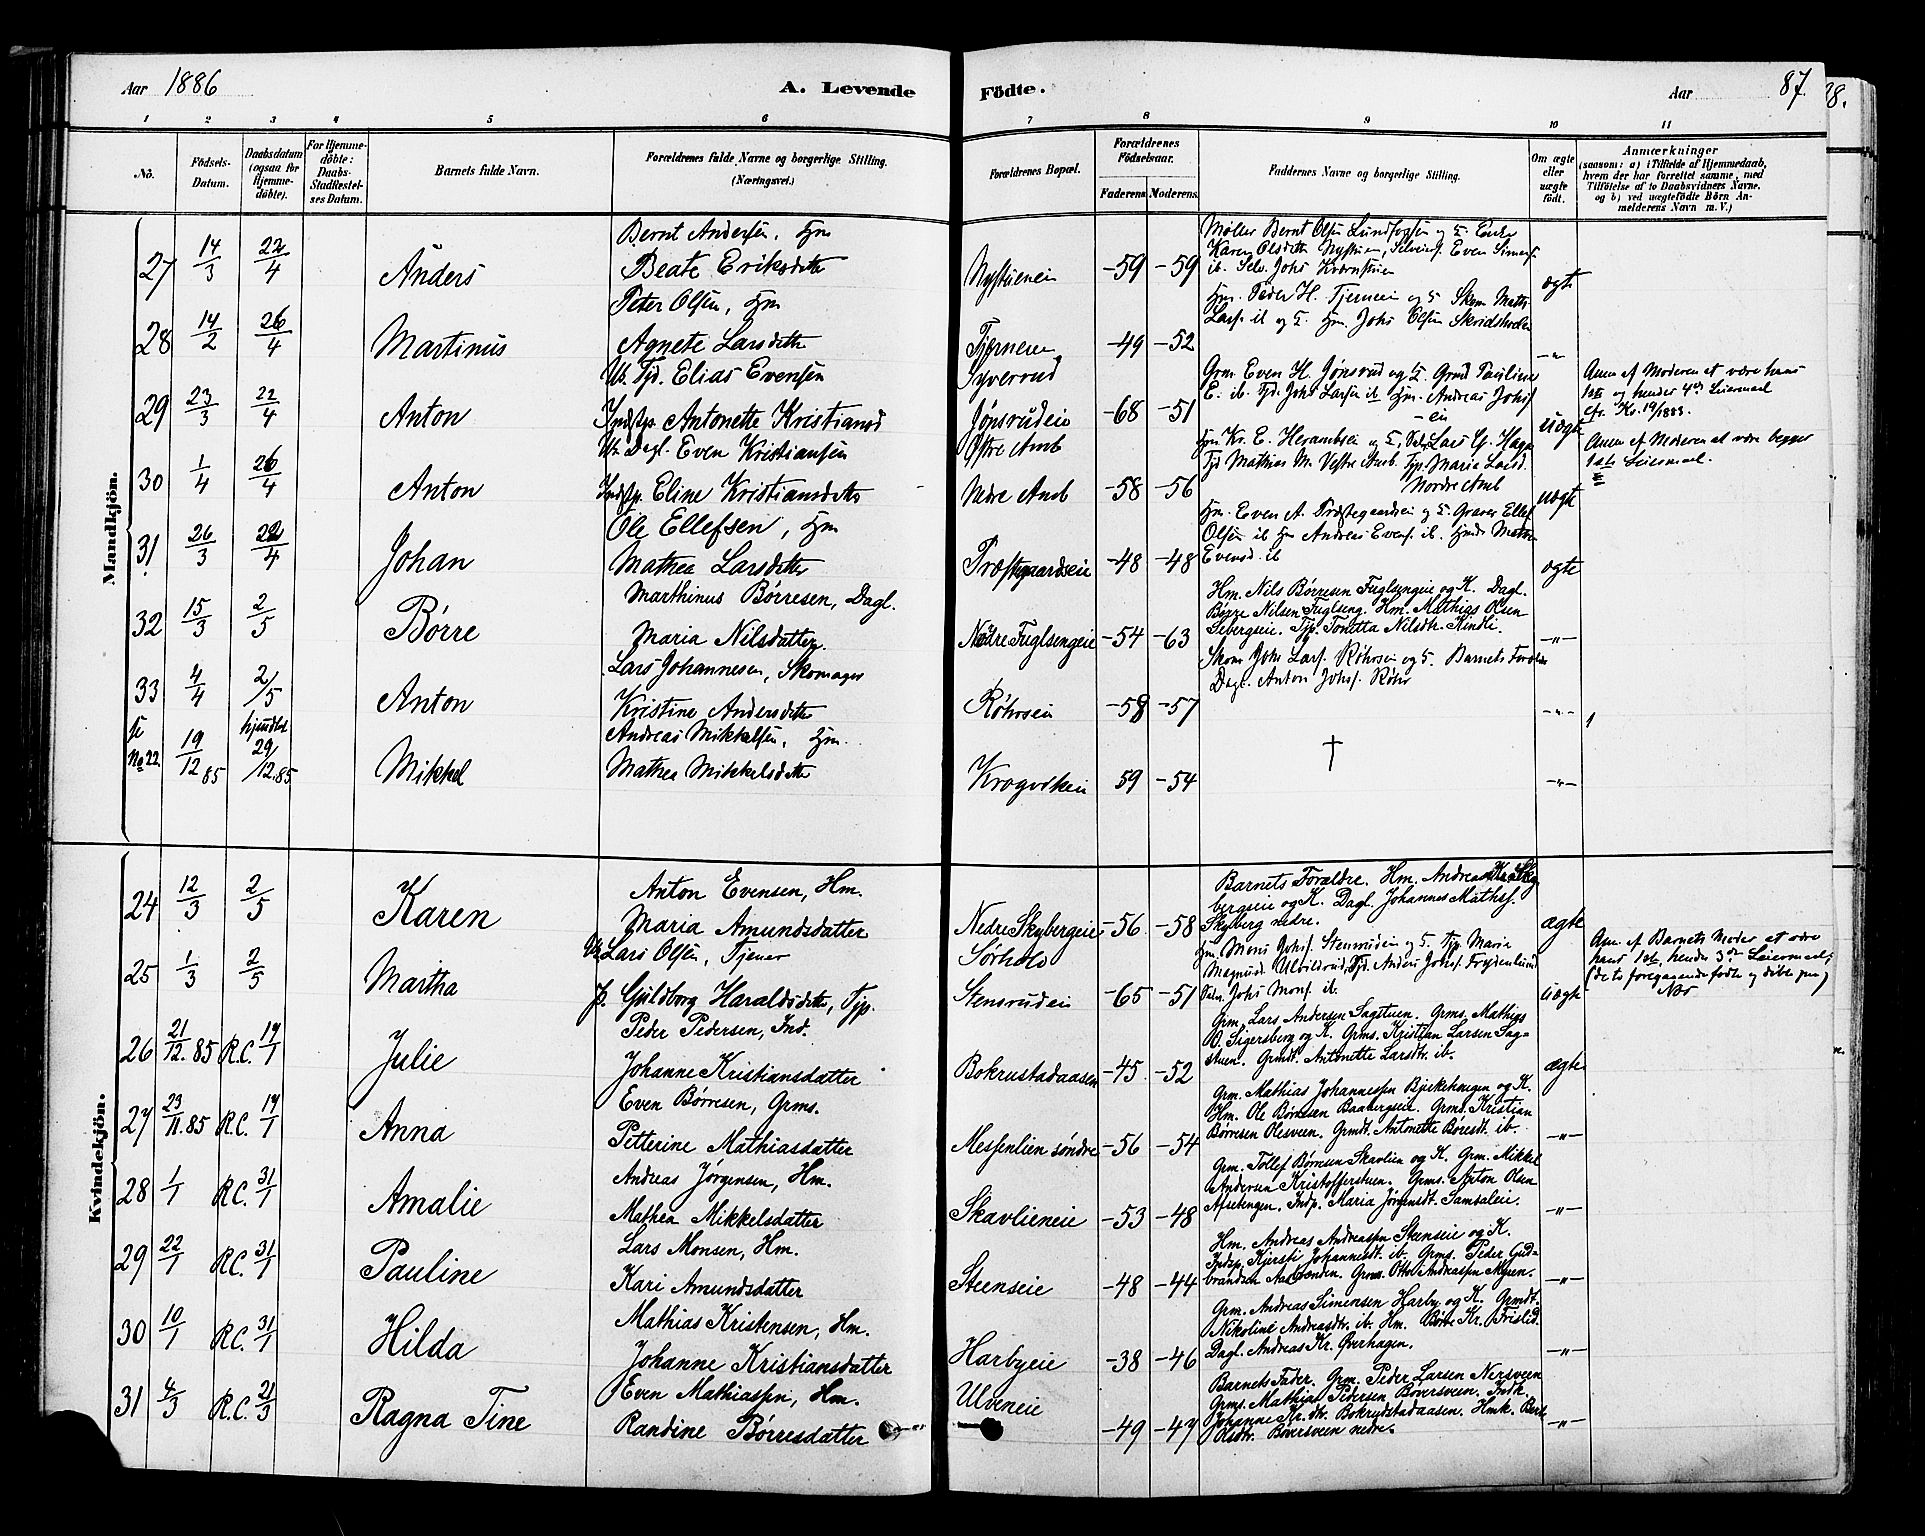 Aar 1886
A. Levende
Födte.
Aar
87.
88.
1 2 3 4 5 6 7 8 9 10 11
No.
Födsels-Datum.
Daabsdatum (ogsaa for Hjemmedöbte).
For Hjemmedöbte: Daabs-Stadfæstelses Datum.
Barnets fulde Navn.
Forældrenes fulde Navne og borgerlige Stilling. (Næringsvei.)
Forældrenes Bopæl.
Forældrenes Födselsaar.
Faderens. Moderens.
Faddernes Navne og borgerlige Stilling.
Om ægte eller uægte födt.
Anmærkninger
(saasom: a) i Tilfælde af Hjemmedaab, hvem der har forrettet samme, med Tilföielse af to Daabsvidners Navne, og b) ved uægtefödte Börn Anmelderens Navn m. V.)
Mandkjön.
27 14/3 22/4 Anders
Bernt Andersen, Hm
Beate Eriksdtter
Nystuenei -59 -59
Møller Bernt Olsen
Karen Olsdtter Nystuen, Even Simens.
ib. Selv. Johs
ægte
28 14/2 26/4 Martinus
Peter Olsen, Hm
Agnete Larsdtter
-49 -52
Hm. Peder H. Tjernei og
Lars. ib og Hm. Johs Olsen
-"-
29 23/3 22/4 Anton
U. Tjd. Elias Evensen
Indstp. Antonette Kristiansd
Tyverud
Jønsrudeie -68 -51
Grm Even H. Jønsrud og Pauline
E. ib. Tjd. Johs Larsen ib Hm. Andreas Johs.
-ei
uægte
Anm. af Moderen at være hans
1ste og hendes 4de Leiermaal
cfr. Kv. 19/1883.
30 1/4 26/4 Anton
Dagl. Even Kristiansen
Indstp. Eline Kristiansdtter
Østre Amb
Nedre Amb -58 -56
Hm Kr. E. Lars
Tjd Mathias M. Vestre Amb. Tjp. Maria Larsd.
Nordre Amb
uægte
Anm. af Moderen at være begges
1ste Leiermaal.
31 26/3 22/4 Johan
Ole Ellefsen, Hm
Mathea Larsdtter
Præstegaardseie -48 -48
Hm. Even A. Præstegaardsei og Graver Ellef
Olsen ib Hm Andreas Evens. ib.
Evensd. ib
ægte
32 15/3 2/5 Børre
Marthinus Børresen, Dagl.
Maria Nilsdatter.
Nedre Fuglsengeie -54 -63
Hm. Nils Børresen Fuglsengeie og K. Dagl.
Børre Nilsen Fuglseng. Hm. Mathias Olsen
Sebergseie. Tjp. Tonetta Nilsdtr. Kindli.
-"-
33 4/4 2/5 Anton
Lars Johannesen, Skomager
Kristine Andersdtter
Røhrsei -58 -57
Skom Johs Lars. Røhrsei og Barnets Forældre
Dagl. Anton Johs. Røhr
-"-
se No 22 19/12 85 hjmdbt 29/12.85 Mikkel
Andreas Mikkelsen, Hm.
Mathea Mikkelsdtter
Krogvikeie 59 -54
†
-"-
Kvindekjön.
24 12/3 2/5 Karen
Anton Evensen, Hm.
Maria Amundsdatter
Nedre Skybergeie -56 -58
Barnets Forældre. Hm. Andreas Kr. Sky-
bergseie og K. Dagl. Johannes Mathss.
Skyberg nedre.
ægte
25 1/3 2/5 Martha
Lars Olsen, Tjener
P. Guldborg Haraldsdtter, Tjp.
Sørhole
Stensrudei -65 -51
Hm. Mons Johs. Stensrudein og Tjp. Maria
Magnusd. Ulvildsrud, Tjd. Anders Johs. Frydenlund
Johs Mons. ib.
uægte
Anm. af Barnets Moder at være
hans 1ste, hendes 3die Leiermaal,
(de to foregaaende fødte og døbte paa)
Næs
26 21/12.85 R.C. 17/1 Julie
Peder Pedersen, Ind.
Johanne Kristiansdatter
Bokrustadaasen -45 -52
Grm. Lars Andersen Sagstuen. Grms. Mathias
O. Sigersberg og K. Grms. Kristian Larsen Sag-
stuen. Grmdt. Antonette Larsdtr. ib.
ægte
27 23/11.85 R.C. 17/1 Anna
Even Børresen, Grms.
Petterine Mathiasdatter
Messenlien søndre -56 -54
Grm. Mathias Johannessen Bjerkehaugen og K.
Hm. Ole Børresen Baabergseie. Grms. Kristian
Børresen Olesveen. Grmdt. Antonette Børesdt. ib.
-"-
28 1/1 R.C. 31/1 Amalie
Andreas Jørgensen, Hm.
Mathea Mikkelsdatter
Skavlieneie -53 -48
Grm. Tollef Børresen Skavlien og K. Grm. Mikkel
Andersen Kristofferstuen. Grms. Anton Olsen
Afsetengen. Indp. Maria Jørgensdt. Samsaleie.
-"-
29 22/1 R.C. 31/1 Pauline
Lars Monsen, Hm.
Kari Amundsdatter
Steenseie -48 -44
Hm. Andreas Andreassen Steenseie og K.
Indp. Kjersti Johannesdt. ib. Grms. Peder Gud-
brandsen Grms. Otto Andreassen Myren.
-"-
30 10/1 R.C. 31/1 Hilda
Mathias Kristensen, Hm.
Johanne Kristiansdatter
Harbyeie -38 -46
Grm. Andreas Simensen Harby og K. Grmdt.
Nikoline Andreasdtr. ib. Hm. Børre Kr. Fristid.
Dagl. Andreas Kr. Øverhagen.
-"-
31 4/3 R.C. 21/3 Ragna Tine
Even Mathiassen, Hm.
Randine Børresdatter
Ulveneie -49 -47
Barnets Fader. Grm. Peder Larsen Nersveen
Grms. Mathias Pedersen Bøversveen. Indk.
Johanne Kr. dtr. Bokrustadaasen. Hmk. Berte
Olsdtr. Bøversveen nedre.
-"-